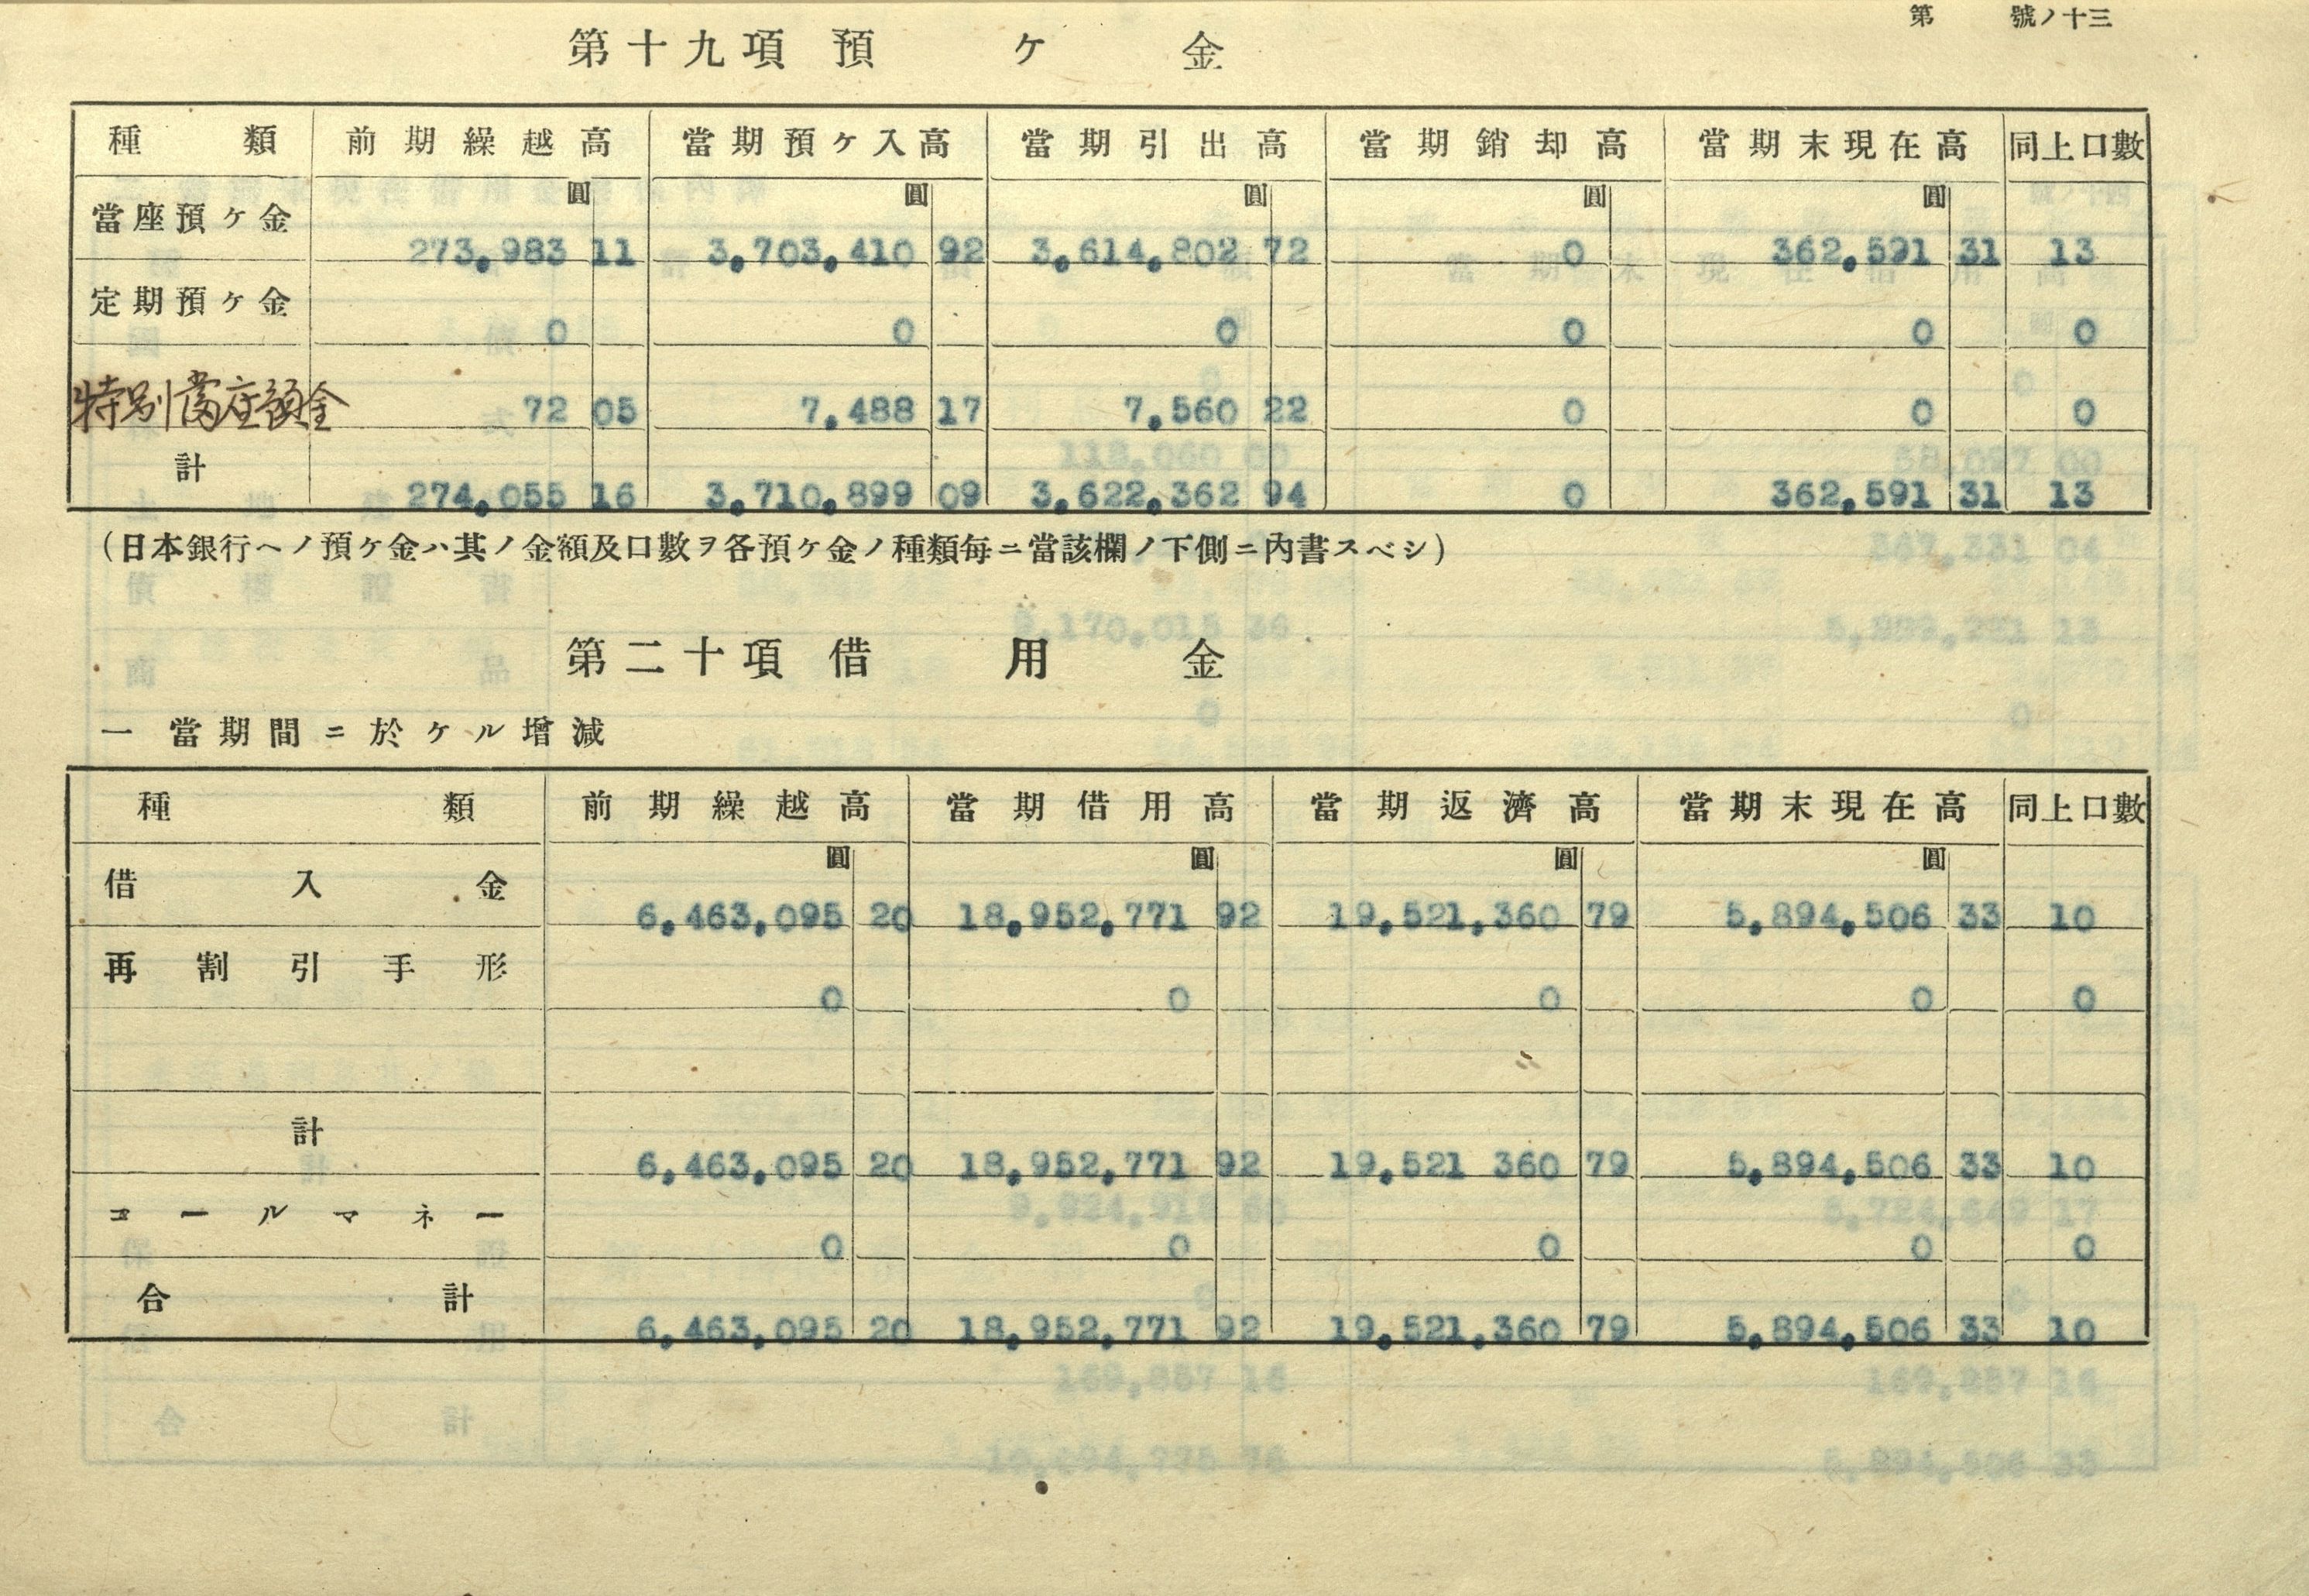 第 號ノ十三
第十九項 預ケ金
種類 前期繰越高 當期預ケ入高 當期引出高 當期銷却高 當期末現在高 同上口數
圓 圓 圓 圓 圓
當座預ケ金 273,983 11 3,703,410 92 3,614,802 72 0 362,591 31 13
定期預ケ金 0 0 0 0 0 0
特別當座預金 72 05 7,488 17 7,560 22 0 0 0
計 274,055 16 3,710,899 09 3,622,362 94 0 362,591 31 13
(日本銀行ヘノ預ケ金ハ其ノ金額及口數ヲ各預ケ金ノ種類每ニ當該欄ノ下側ニ內書スベシ)
第二十項 借用金
一 當期間ニ於ケル增減
種類 前期繰越高 當期借用高 當期返濟高 當期末現在高 同上口數
圓 圓 圓 圓
借入金 6,463,095 20 18,952,771 92 19,521,360 79 5,894,506 33 10
再割引手形 0 0 0 0 0
計 6,463,095 20 18,952,771 92 19,521 360 79 5,894,506 33 10
コールマネー 0 0 0 0 0
合計 6,463,095 20 18,952,771 92 19,521,360 79 5,894,506 33 10